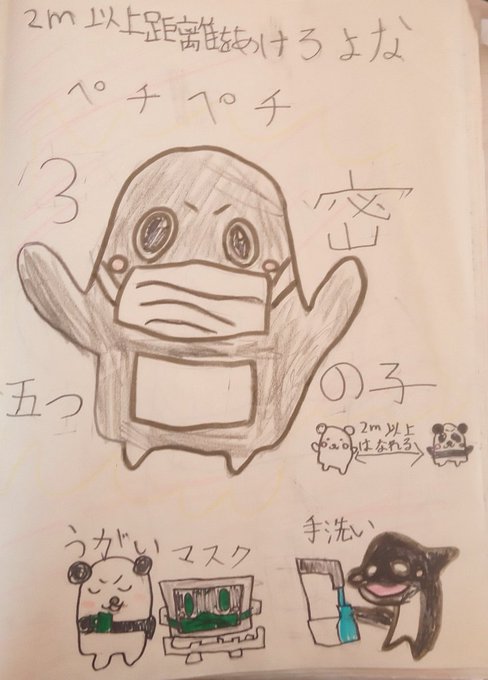 2m以上距離をあけろよな
ペチペチ
3密
五つの子
2m以上
はなれる
うがい
マスク
手洗い